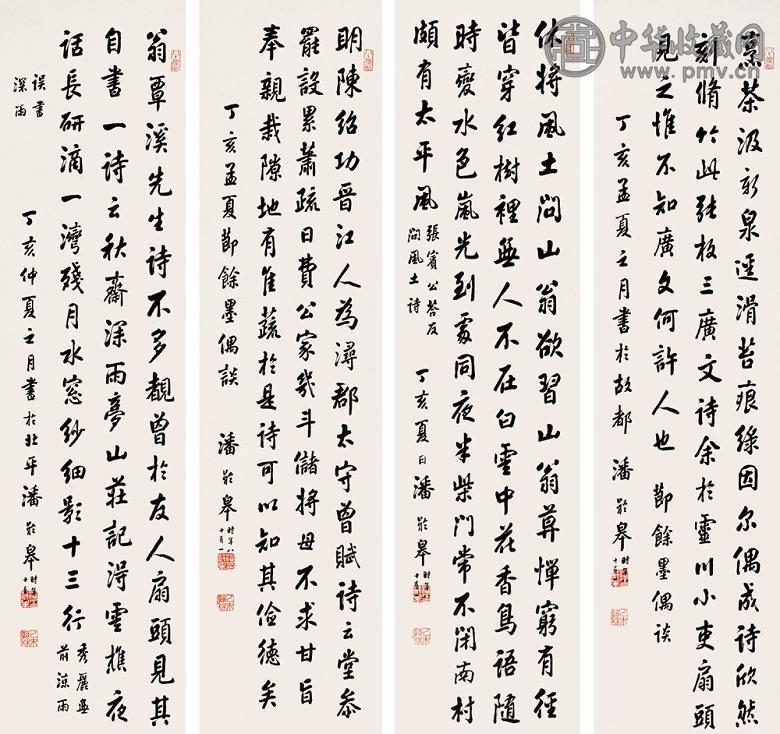 烹茶汲新泉逕滑苔痕綠因尔偶成诗欣然
刻脩竹此張枚三廣文诗余於靈川小吏扇頭
見之惟不知廣文何許人也 節餘墨偶谈
丁亥孟夏之月書於故都 潘齡皋
休將風土问山翁欲習山翁莫憚窮有徑
皆穿红樹裡無人不在白雲中花香鳥語随
時變水色嵐光到處同夜半柴門常不闭南村
頗有太平風 張賓公答友
问風土诗
丁亥夏日潘齡皋 时年八
十有一
明陳紹功晋江人為潯郡太守曾賦诗云堂叅
罷設累蕭疏日費公家幾斗儲將母不求甘旨
奉親栽隙地有隹蔬於是诗可以知其儉德矣
丁亥孟夏節餘墨偶談 潘齡皋 时年八
十有一
翁覃溪先生诗不多覩曾於友人扇頭見其
自書一诗云秋齋深雨夢山莊記浔雲樵夜
话長研滴一灣殘月水窓紗细影十三行 秀麗無
前涼雨
误書
深雨
丁亥仲夏之月書於北平潘齡皋 时年八
十有一
中华收藏网
www.pmv.cn